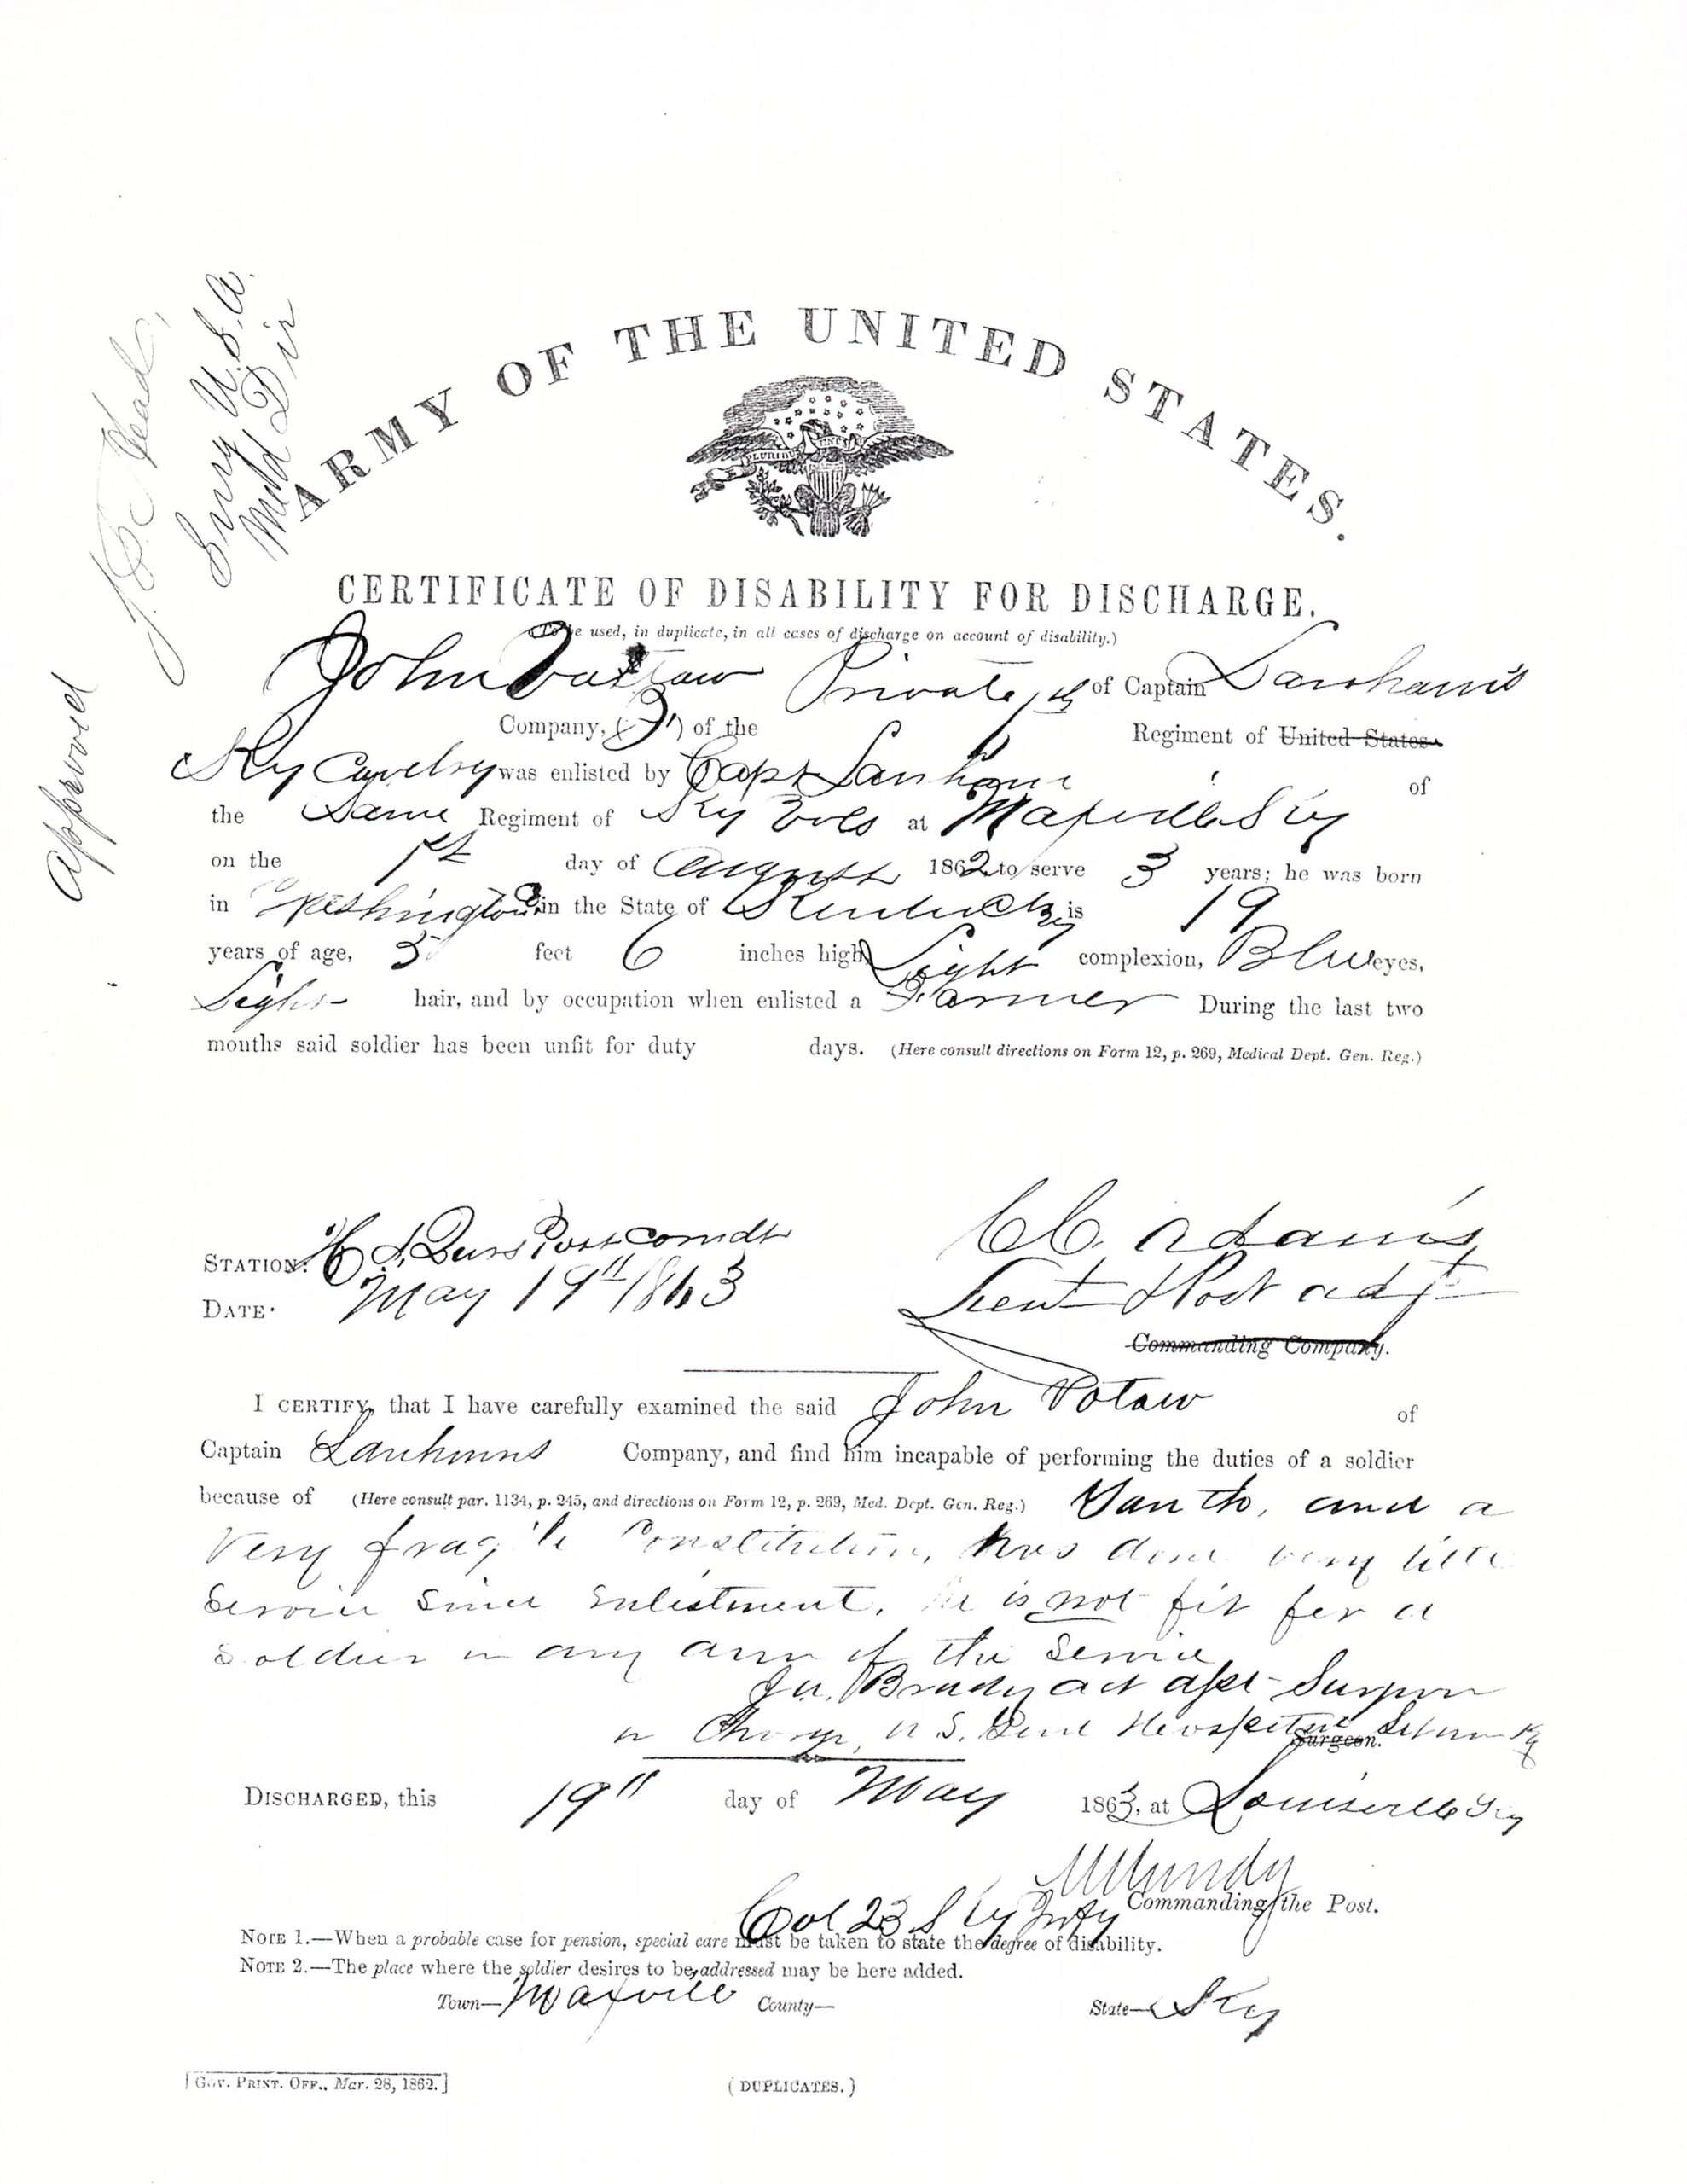 Approved
J. C. Head,
Surg U.S.A.
Med Dir
ARMY OF THE UNITED STATES.
CERTIFICATE OF DISABILITY FOR DISCHARGE.
(To be used, in duplicate, in all cases of discharge on account of disability.)
John Private, of Captain
Company, ( ) of the Regiment of United States
Ky Cavelry was enlisted by Capt Lanham of
the Same Regiment of Ky Vols at Maxville Ky
on the 1st day of August 1862 to serve 3 years; he was born
in Washington Co in the State of Kentucky is 19
years of age, 5 feet 6 inches high, Light complexion, Blue eyes,
Light hair, and by occupation when enlisted a Farmer During the last two
months said soldier has been unfit for duty days. (Here consult directions on Form 12, p. 269, Medical Dept. Gen. Reg.)
STATION: Hd Qurs Post Comdt
DATE: May 19" 1863
CC. Adams
Lieut & Post adjt
Commanding Company.
I CERTIFY, that I have carefully examined the said John Potaw of
Captain Lanhams Company, and find him incapable of performing the duties of a soldier
because of (Here consult par. 1134, p. 245, and directions on Form 12, p. 269, Med. Dept. Gen. Reg.) and a
Very fragile Constitution, has done very little
Service Since Enlistment, he is not fit for a
Soldier in any arm of the Service
Jn. Brady act asst Surgeon
in Charge, U.S. Genl Hospital Ky
Surgeon.
DISCHARGED, this 19" day of May 1863, at Louisville Ky
M Mundy
Commanding the Post.
Col 23 Ky Infty
NOTE 1.—When a probable case for pension, special care must be taken to state the degree of disability.
NOTE 2.—The place where the soldier desires to be addressed may be here added.
Town—Maxvill County— State—Ky
[GOV. PRINT. OFF., Mar. 28, 1862.]
(DUPLICATES.)